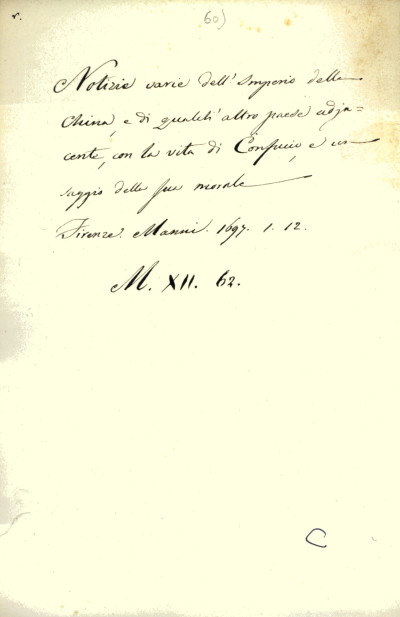 60)
Notizie varie dell'Imperio della
China, e di qualch'altro paese adja=
cente, con la vita di Confucio, e un
saggio della sua morale
Firenze. Manni. 1697. 1. 12.
M. XII. 62.
C